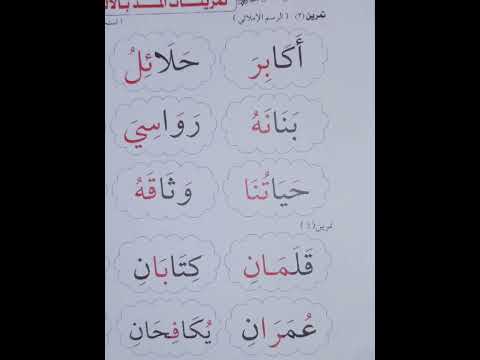 تمرين (٣) ( الرسم الإملائي )
أَكَابِرَ حَلَائِلُ
بَنَانَهُ رَوَاسِيَ
حَيَاتُنَا وَثَاقَهُ
تمرين
قَلَمَانِ كِتَابَانِ
عُمَرَانِ يُكَافِحَانِ